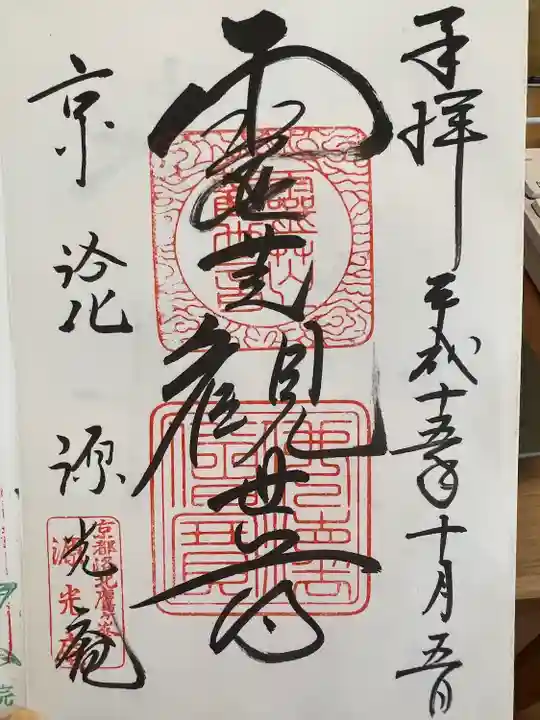 奉拝 平成十五年十月五日
霊芝観世音
京洛北 源光庵
京都洛北鷹ヶ峯
源光庵